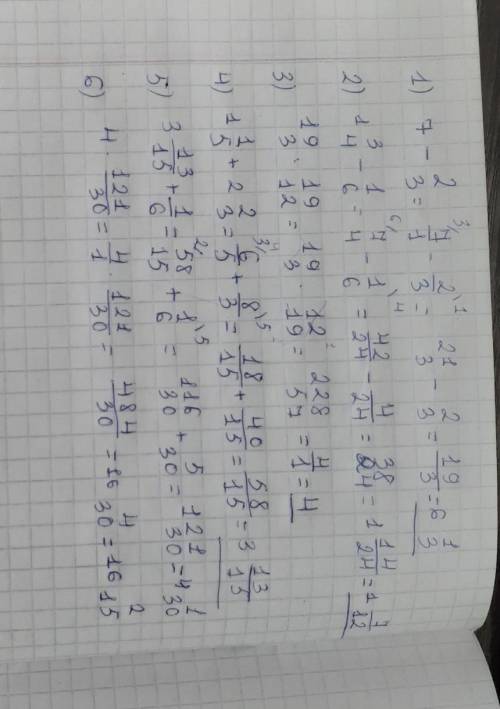 1) 7 - 2/3 = 7/1 - 2/3 = 21/3 - 2/3 = 19/3 = 6 1/3
2) 1 3/4 - 1/6 = 7/4 - 1/6 = 42/24 - 4/24 = 38/24 = 1 14/24 = 1 7/12
3) 19/3 : 19/12 = 19/3 · 12/19 = 228/57 = 4/1 = 4
4) 1 1/5 + 2 2/3 = 6/5 + 8/3 = 18/15 + 40/15 = 58/15 = 3 13/15
5) 3 13/15 + 1/6 = 58/15 + 1/6 = 116/30 + 5/30 = 121/30 = 4 1/30
6) 4 · 121/30 = 4/1 · 121/30 = 484/30 = 16 4/30 = 16 2/15